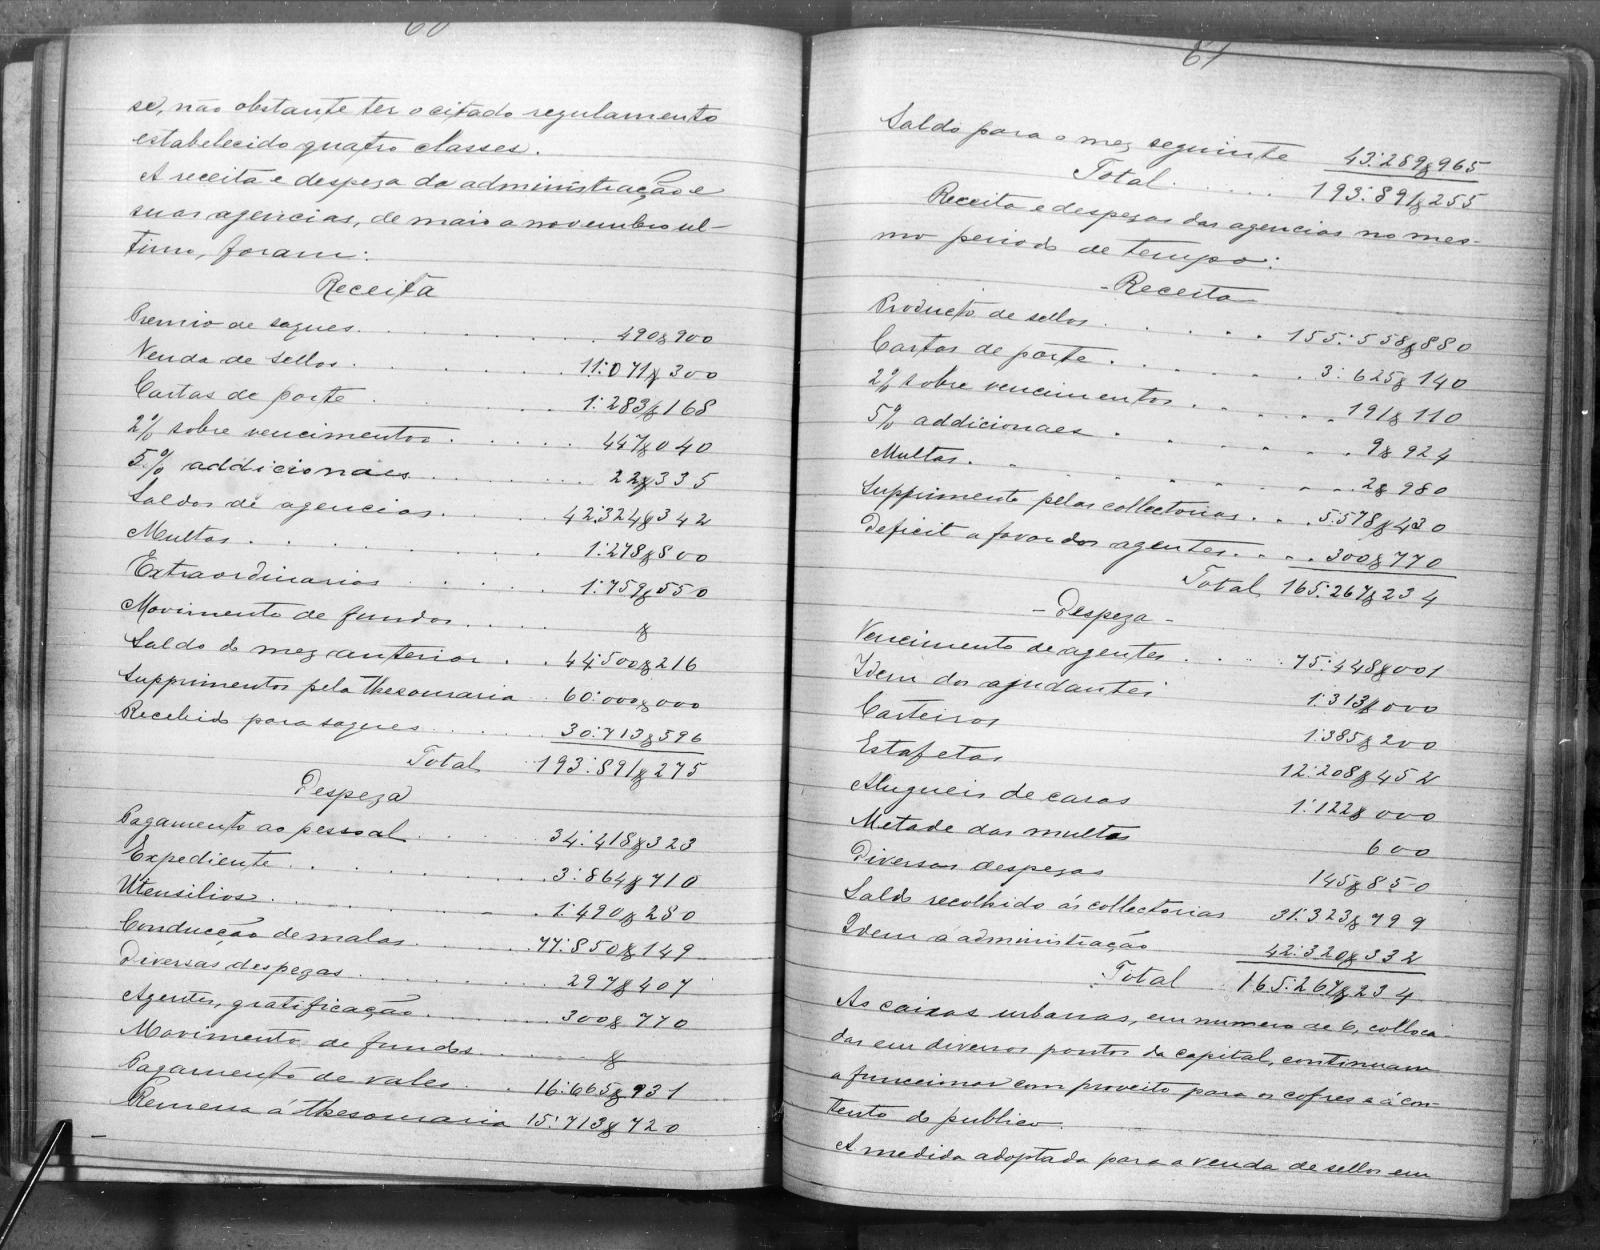 60
se, não obstante ter o citado regulamento
estabelecido quatro classes.
A receita e despeza da administração e
suas agencias, de maio a novembro ul-
timo, foram:
Receita
Premio de saques. 490$900
Venda de sellos. 11:071$300
Cartas de porte 1:283$168
2% sobre vencimentos. 447$040
5% addicionaes 22$335
Saldos de agencias. 42:324$342
Multas. 1:278$800
Extraordinarios 1:759$550
Movimento de fundos $
Saldo do mez anterior 44:500$216
Supprimentos pela thesouraria 60:000$000
Recebido para saques 30:713$596
Total 193:891$275
Despeza
Pagamento ao pessoal 34:418$323
Expediente. 3:864$710
Utensilios 1:490$280
Conducção de malas. 77:850$149
Diversas despezas 297$407
Agentes, gratificação 300$770
Movimento de fundos $
Pagamento de vales. 16:665$931
Remessa á thesouraria 15:713$720
61
Saldo para o mez seguinte 43:289$965
Total 193:891$255
Receita e despezas das agencias no mes-
mo periodo de tempo:
- Receita
Producto de sellos 155:558$880
Cartas de porte. 3:625$140
2% sobre vencimentos 191$110
5% addicionaes 9$924
Multas. 2$980
Supprimento pelas collectorias. 5:578$430
Deficit a favor dos agentes. 300$770
Total 165:267$234
- Despeza -
Vencimento de agentes. 75:448$001
Idem dos ajudantes 1:313$000
Carteiros 1:385$200
Estafetas 12:208$452
Alugueis de casas 1:122$000
Metade das multas 600
Diversas despezas 145$850
Saldo recolhido ás collectorias 31:323$799
Idem á administração 42:320$332
Total 165:267$234
As caixas urbanas, em numero de 6, colloca-
das em diversos pontos da capital, continuam
a funccionar com proveito para os cofres e á con-
tento do publico.
A medida adoptada para a venda de sellos em